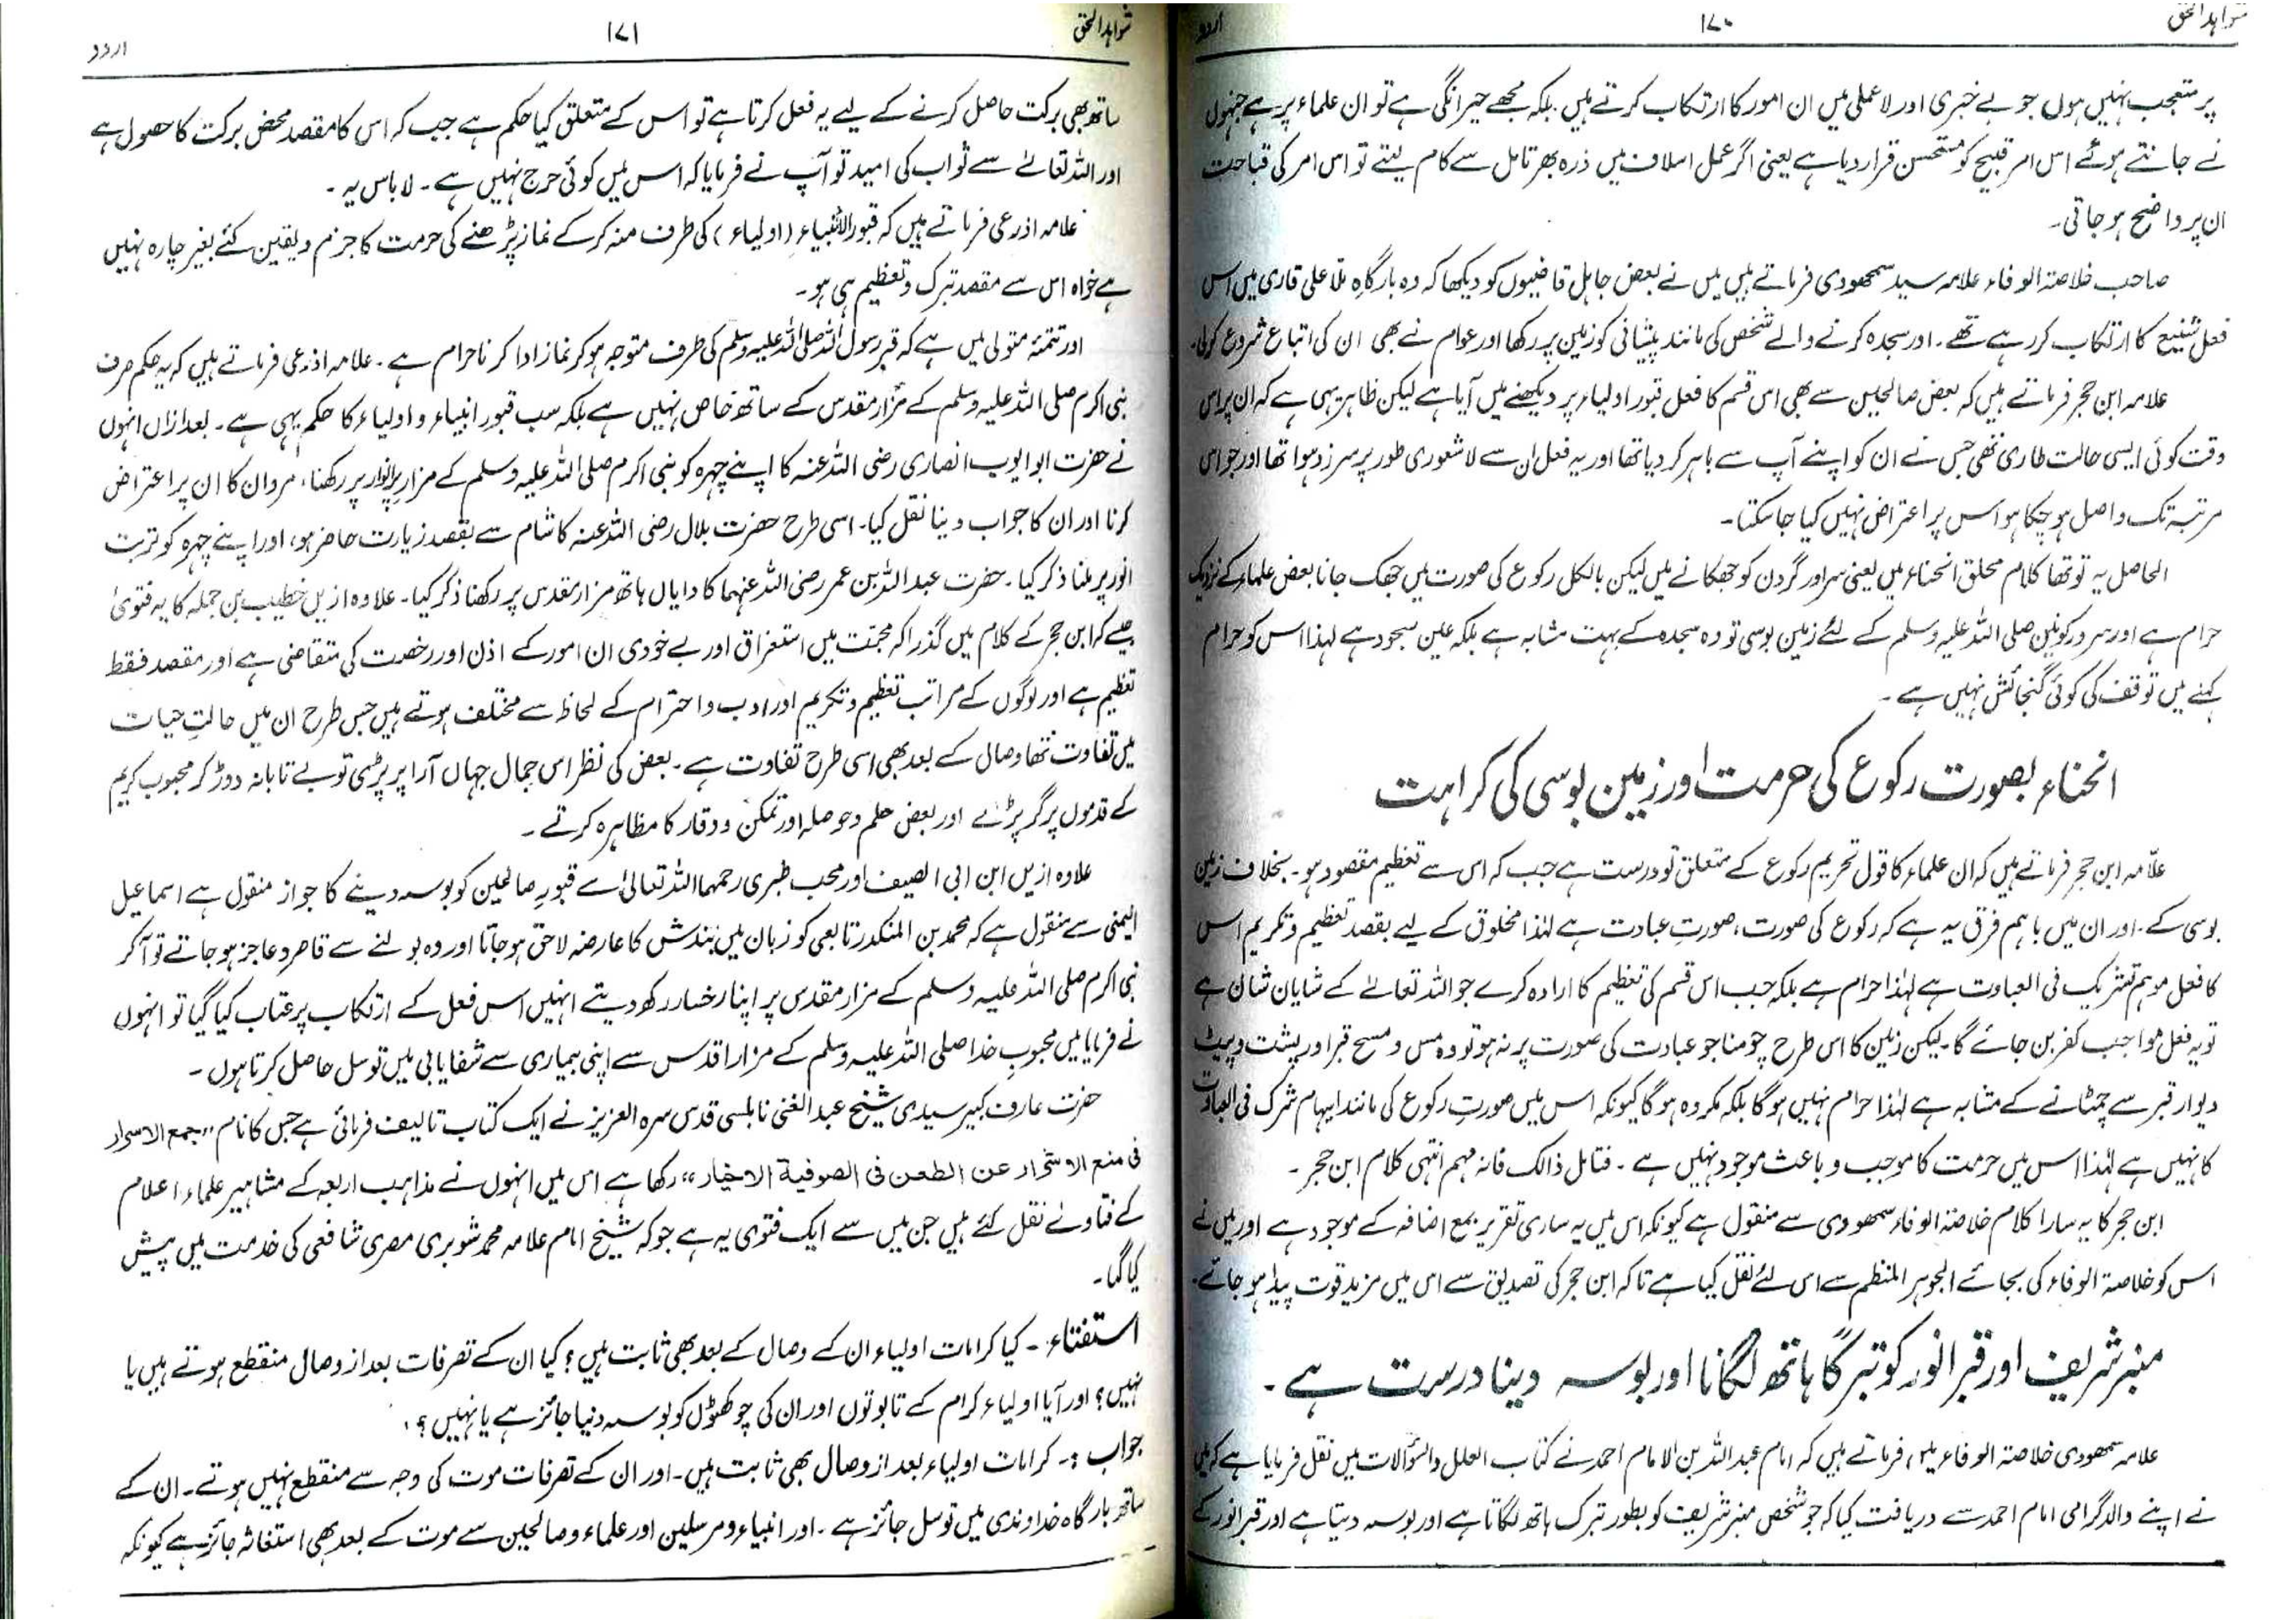 شواہد الحق ۱۷۰ اردو
پر متعجب نہیں ہوں جو بے خبری اور لاعملی میں ان امور کا ارتکاب کرتے ہیں بلکہ مجھے حیرانگی ہے تو ان علماء پر ہے جنہوں
نے جانتے ہوئے اس امر قبیح کو مستحسن قرار دیا ہے یعنی اگر عمل اسلاف میں ذرہ بھر تامل سے کام لیتے تو اس امر کی قباحت
ان پر واضح ہو جاتی۔
صاحب خلاصۃ الوفاء علامہ سید سمھودی فرماتے ہیں میں نے بعض جاہل قاضیوں کو دیکھا کہ وہ بارگاہِ ملا علی قاری میں اس
فعل شنیع کا ارتکاب کر رہے تھے۔ اور سجدہ کرنے والے شخص کی مانند پیشانی کو زمین پر رکھا اور عوام نے بھی ان کی اتباع شروع کر لی۔
علامہ ابن حجر فرماتے ہیں کہ بعض صالحین سے بھی اس قسم کا فعل قبور اولیاء پر دیکھنے میں آیا ہے لیکن ظاہر یہی ہے کہ ان پر اس
وقت کوئی ایسی حالت طاری تھی جس نے ان کو اپنے آپ سے باہر کر دیا تھا اور یہ فعل ان سے لاشعوری طور پر سرزد ہوا تھا اور جو اس
مرتبہ تک واصل ہو چکا ہو اس پر اعتراض نہیں کیا جا سکتا۔
الحاصل یہ تو تھا کلام محلق انحناء میں یعنی سر اور گردن کو جھکانے میں لیکن بالکل رکوع کی صورت میں جھک جانا بعض علماء کے نزدیک
حرام ہے اور سرور کونین صلی اللہ علیہ وسلم کے لئے زمین بوسی تو وہ سجدہ کے بہت مشابہ ہے بلکہ عین سجود ہے لہذا اس کو حرام
کہنے میں توقف کی کوئی گنجائش نہیں ہے۔
انحناء بصورت رکوع کی حرمت اور زمین بوسی کی کراہت
علّامہ ابن حجر فرماتے ہیں کہ ان علماء کا قول تحریم رکوع کے متعلق تو درست ہے جب کہ اس سے تعظیم مقصود ہو۔ بخلاف زمین
بوسی کے۔ اور ان میں باہم فرق یہ ہے کہ رکوع کی صورت، صورتِ عبادت ہے لہٰذا مخلوق کے لیے بقصد تعظیم وتکریم اس
کا فعل موہم تشریک فی العبادت ہے لہٰذا حرام ہے بلکہ جب اس قسم کی تعظیم کا ارادہ کرے جو اللہ تعالےٰ کے شایان شان ہے
تو یہ فعل موا جب کفر بن جائے گا۔ لیکن زمین کا اس طرح چومنا جو عبادت کی صورت پر نہ ہو تو وہ مس و مسح قبر اور پشت و پیٹ
دیوار قبر سے چمٹانے کے مشابہ ہے لہٰذا حرام نہیں ہو گا بلکہ مکروہ ہو گا کیونکہ اس میں صورتِ رکوع کی مانند ایہام شرک فی العبادت
کا نہیں ہے لہٰذا اس میں حرمت کا موجب و باعث موجود نہیں ہے۔ فتامل ذالک فانہ مہم انتہٰی کلام ابن حجر۔
ابن حجر کا یہ سارا کلام خلاصۃ الوفاء سمھودی سے منقول ہے کیونکہ اس میں یہ ساری تقریر بمع اضافہ کے موجود ہے اور میں نے
اس کو خلاصۃ الوفاء کی بجائے الجوہر المنظم سے اس لئے نقل کیا ہے تاکہ ابن حجر کی تصدیق سے اس میں مزید قوت پیدا ہو جائے۔
منبر شریف اور قبر انور کو تبرگًا ہاتھ لگانا اور بوسہ دینا درست ہے۔
علامہ سمھودی خلاصۃ الوفاء میں فرماتے ہیں کہ امام عبد اللہ بن الامام احمد نے کتاب العلل والسؤالات میں نقل فرمایا ہے کہ میں
نے اپنے والد گرامی امام احمد سے دریافت کیا کہ جو شخص منبر شریف کو بطور تبرک ہاتھ لگاتا ہے اور بوسہ دیتا ہے اور قبر انور کے
شواہد الحق ۱۷۱ اردو
ساتھ بھی برکت حاصل کرنے کے لیے یہ فعل کرتا ہے تو اس کے متعلق کیا حکم ہے جب کہ اس کا مقصد محض برکت کا حصول ہے
اور اللہ تعالےٰ سے ثواب کی امید تو آپ نے فرمایا کہ اس میں کوئی حرج نہیں ہے۔ لا باس بہ۔
علامہ اذرعی فرماتے ہیں کہ قبور الانبیاء (اولیاء) کی طرف منہ کر کے نماز پڑھنے کی حرمت کا جزم و یقین کئے بغیر چارہ نہیں
ہے خواہ اس سے مقصد تبرک و تعظیم ہی ہو۔
اور تتمئہ متولی میں ہے کہ قبر رسول اللہ صلی اللہ علیہ وسلم کی طرف متوجہ ہو کر نماز ادا کرنا حرام ہے۔ علامہ اذرعی فرماتے ہیں کہ یہ حکم صرف
نبی اکرم صلی اللہ علیہ وسلم کے مزار مقدس کے ساتھ خاص نہیں ہے بلکہ سب قبور انبیاء و اولیاء کا حکم یہی ہے۔ بعد ازاں انہوں
نے حضرت ابو ایوب انصاری رضی اللہ عنہ کا اپنے چہرہ کو نبی اکرم صلی اللہ علیہ وسلم کے مزار پر انوار پر رکھنا، مروان کا ان پر اعتراض
کرنا اور ان کا جواب دینا نقل کیا۔ اسی طرح حضرت بلال رضی اللہ عنہ کا شام سے بقصد زیارت حاضر ہو، اور اپنے چہرہ کو تربت
انور پر ملنا ذکر کیا۔ حضرت عبد اللہ بن عمر رضی اللہ عنہما کا دایاں ہاتھ مزار مقدس پر رکھنا ذکر کیا۔ علاوہ ازیں خطیب بن جملہ کا یہ فتویٰ
جیسے کہ ابن حجر کے کلام میں گذرا کہ محبّت میں استغراق اور بے خودی ان امور کے اذن اور رخصت کی متقاضی ہے اور مقصد فقط
تعظیم ہے اور لوگوں کے مراتب تعظیم و تکریم اور ادب و احترام کے لحاظ سے مختلف ہوتے ہیں جس طرح ان میں حالتِ حیات
میں تفاوت تھا وصال کے بعد بھی اسی طرح تفاوت ہے۔ بعض کی نظر اس جمال جہاں آرا پر پڑتی تو بے تابانہ دوڑ کر محبوب کریم
کے قدموں پر گر پڑتے اور بعض حلم و حوصلہ اور تمکن و وقار کا مظاہرہ کرتے۔
علاوہ ازیں ابن ابی الصیف اور محب طبری رحمہما اللہ تعالیٰ سے قبورِ صالحین کو بوسہ دینے کا جواز منقول ہے اسماعیل
الیمنی سے منقول ہے کہ محمد بن المنکدر تابعی کو زبان میں بندش کا عارضہ لاحق ہو جاتا اور وہ بولنے سے قاصر و عاجز ہو جاتے تو آ کر
نبی اکرم صلی اللہ علیہ وسلم کے مزار مقدس پر اپنا رخسار رکھ دیتے انہیں اس فعل کے ارتکاب پر عتاب کیا گیا تو انہوں
نے فرمایا میں محبوبِ خدا صلی اللہ علیہ وسلم کے مزار اقدس سے اپنی بیماری سے شفایابی میں توسل حاصل کرتا ہوں۔
حضرت عارف کبیر سیدی شیخ عبد الغنی نابلسی قدس سرہ العزیز نے ایک کتاب تالیف فرمائی ہے جس کا نام ”جمع الاسرار
فی منع الاشرار عن الطعن فی الصوفیة الاخیار“ رکھا ہے اس میں انہوں نے مذاہب اربعہ کے مشاہیر علماء اعلام
کے فتاوےٰ نقل کئے ہیں جن میں سے ایک فتوی یہ ہے جو کہ شیخ امام علامہ محمد شوبری مصری شافعی کی خدمت میں پیش
کیا گیا۔
استفتاء۔ کیا کرامات اولیاء ان کے وصال کے بعد بھی ثابت ہیں؟ کیا ان کے تصرفات بعد از وصال منقطع ہوتے ہیں یا
نہیں؟ اور آیا اولیاء کرام کے تابوتوں اور ان کی چوکھٹوں کو بوسہ دینا جائز ہے یا نہیں؟
جواب :۔ کرامات اولیاء بعد از وصال بھی ثابت ہیں۔ اور ان کے تصرفات موت کی وجہ سے منقطع نہیں ہوتے۔ ان کے
ساتھ بارگاہ خداوندی میں توسل جائز ہے۔ اور انبیاء و مرسلین اور علماء و صالحین سے موت کے بعد بھی استغاثہ جائز ہے کیونکہ